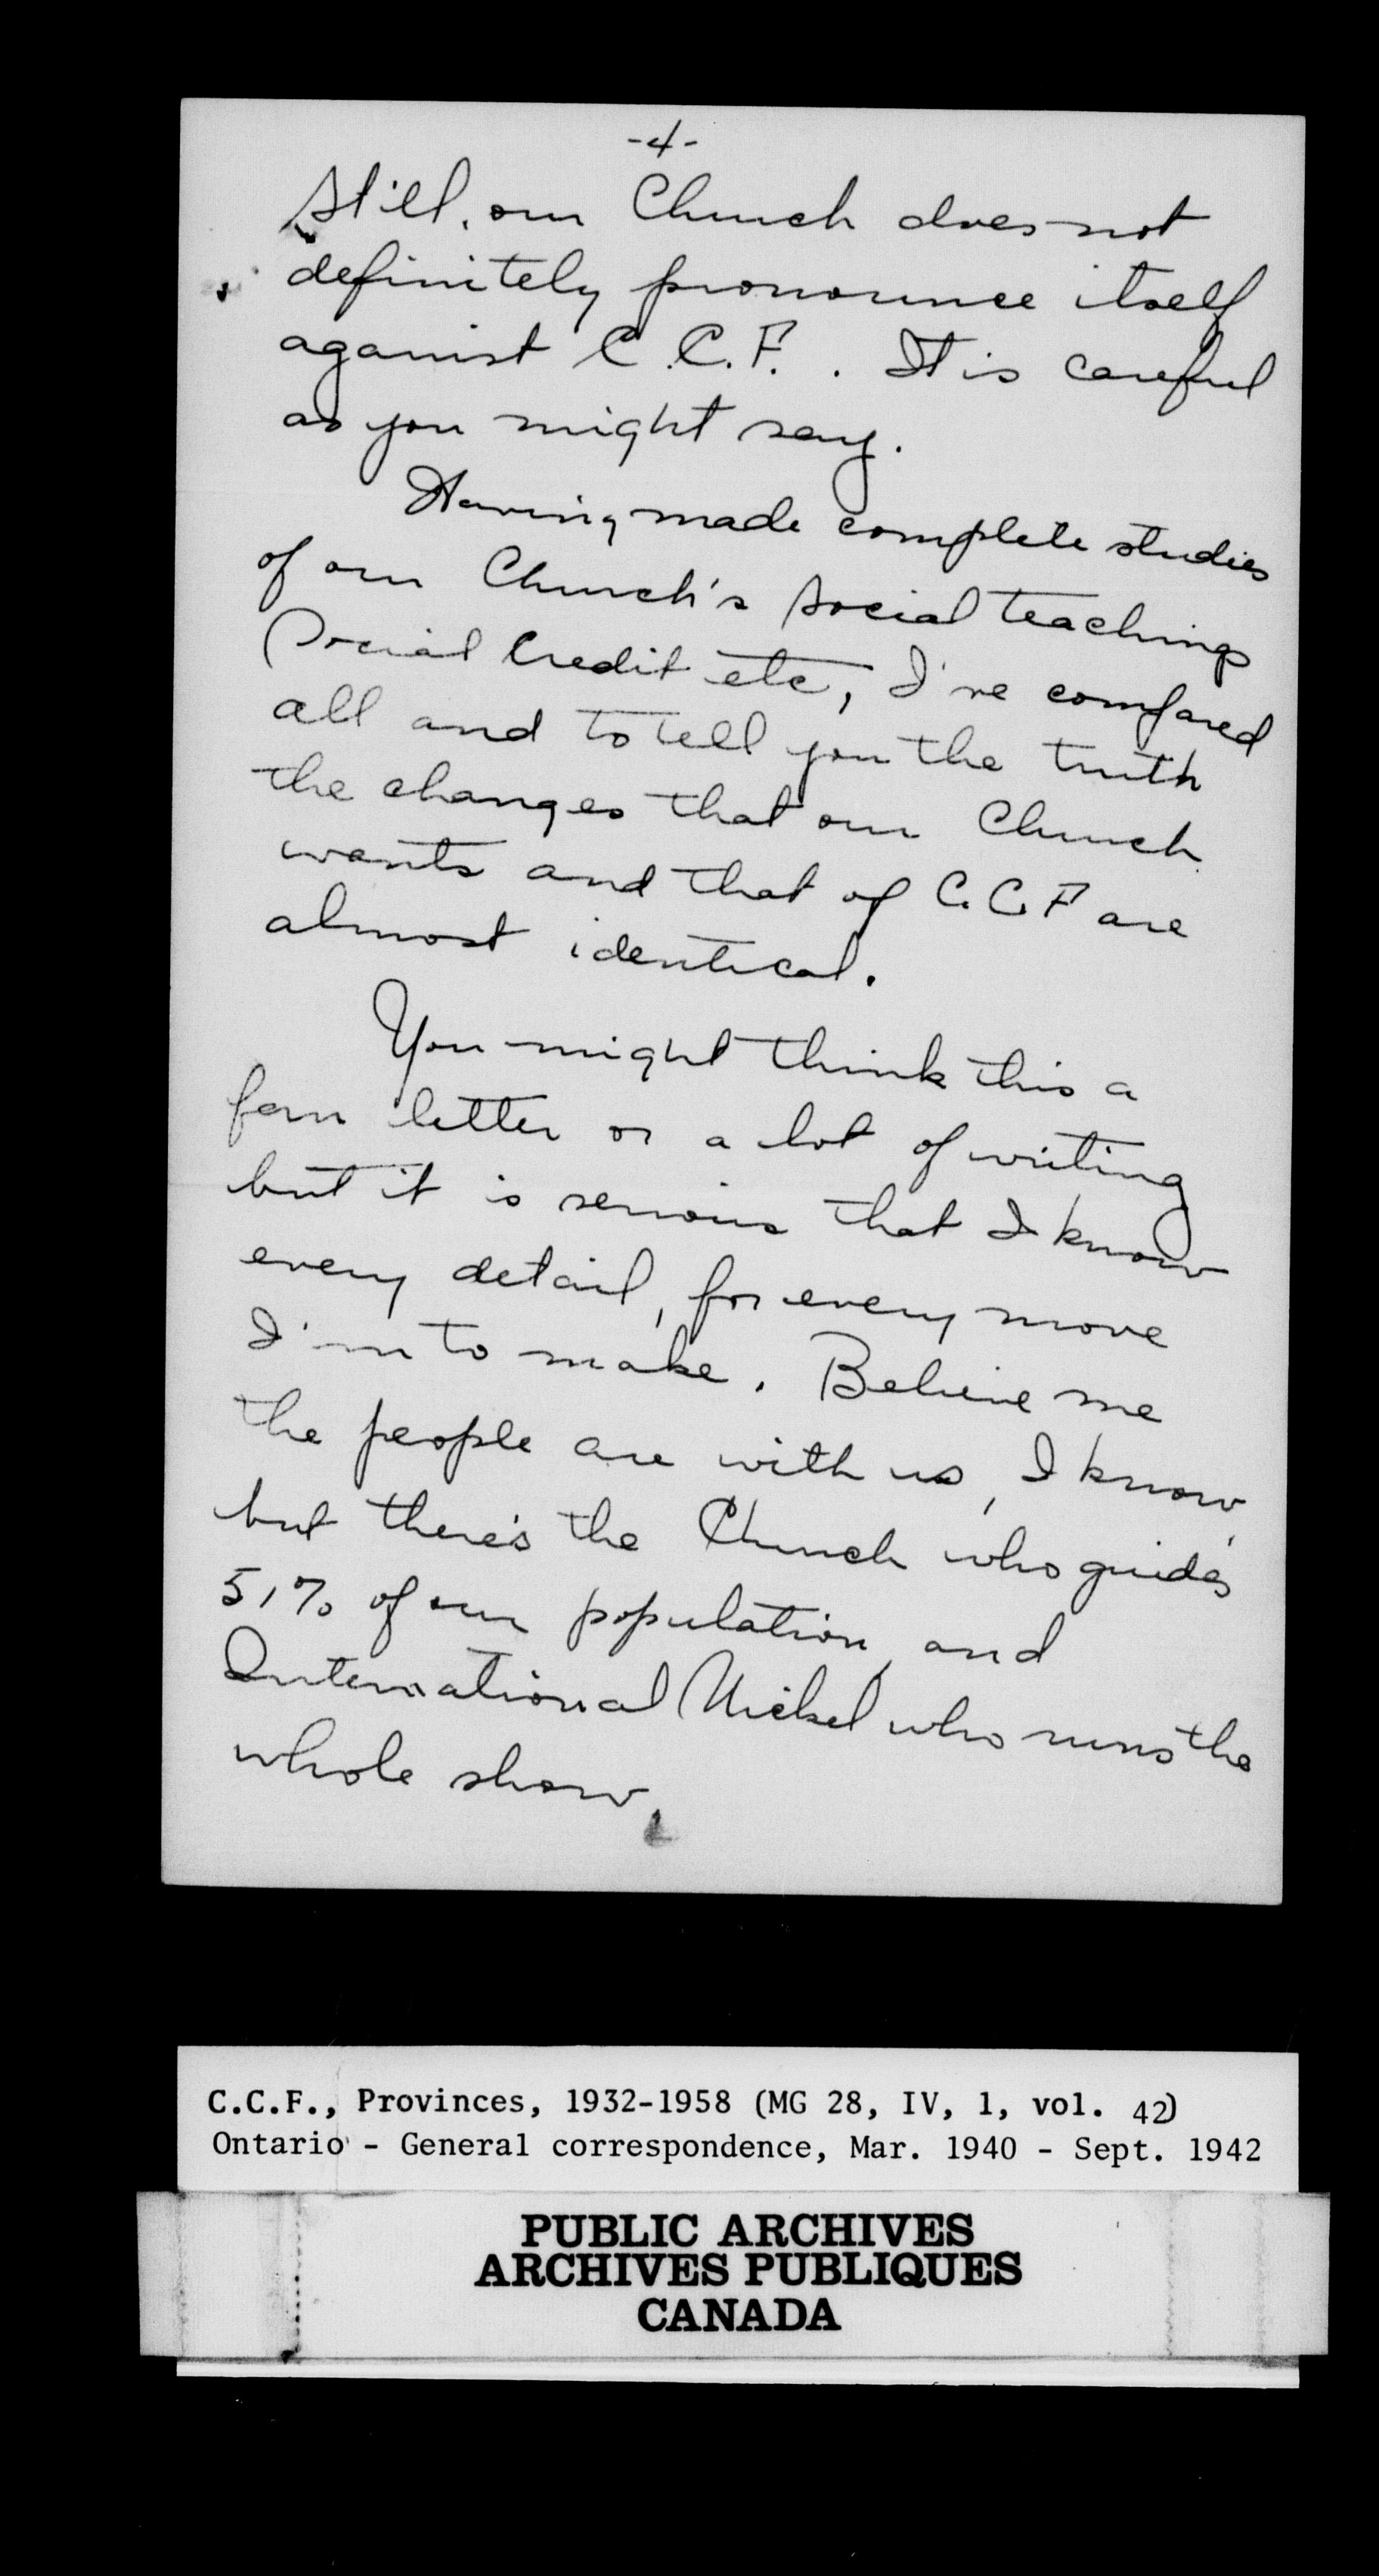 -4-
Still, our Church does not
definitely pronounce itself
against C.C.F. . It is careful
as you might say.
Having made complete studies
of our Church's social teachings
Social Credit etc, I've compared
all and to tell you the truth
the changes that our Church
wants and that of C.C.F are
almost identical.
You might think this a
fan letter or a lot of writing
but it is serious that I know
every detail, for every move
I'm to make. Believe me
the people are with us, I know,
but there's the Church who guides
51% of our population, and
International Nickel who runs the
whole show.
C.C.F., Provinces, 1932-1958 (MG 28, IV, 1, vol. 42)
Ontario - General correspondence, Mar. 1940 - Sept. 1942
PUBLIC ARCHIVES
ARCHIVES PUBLIQUES
CANADA